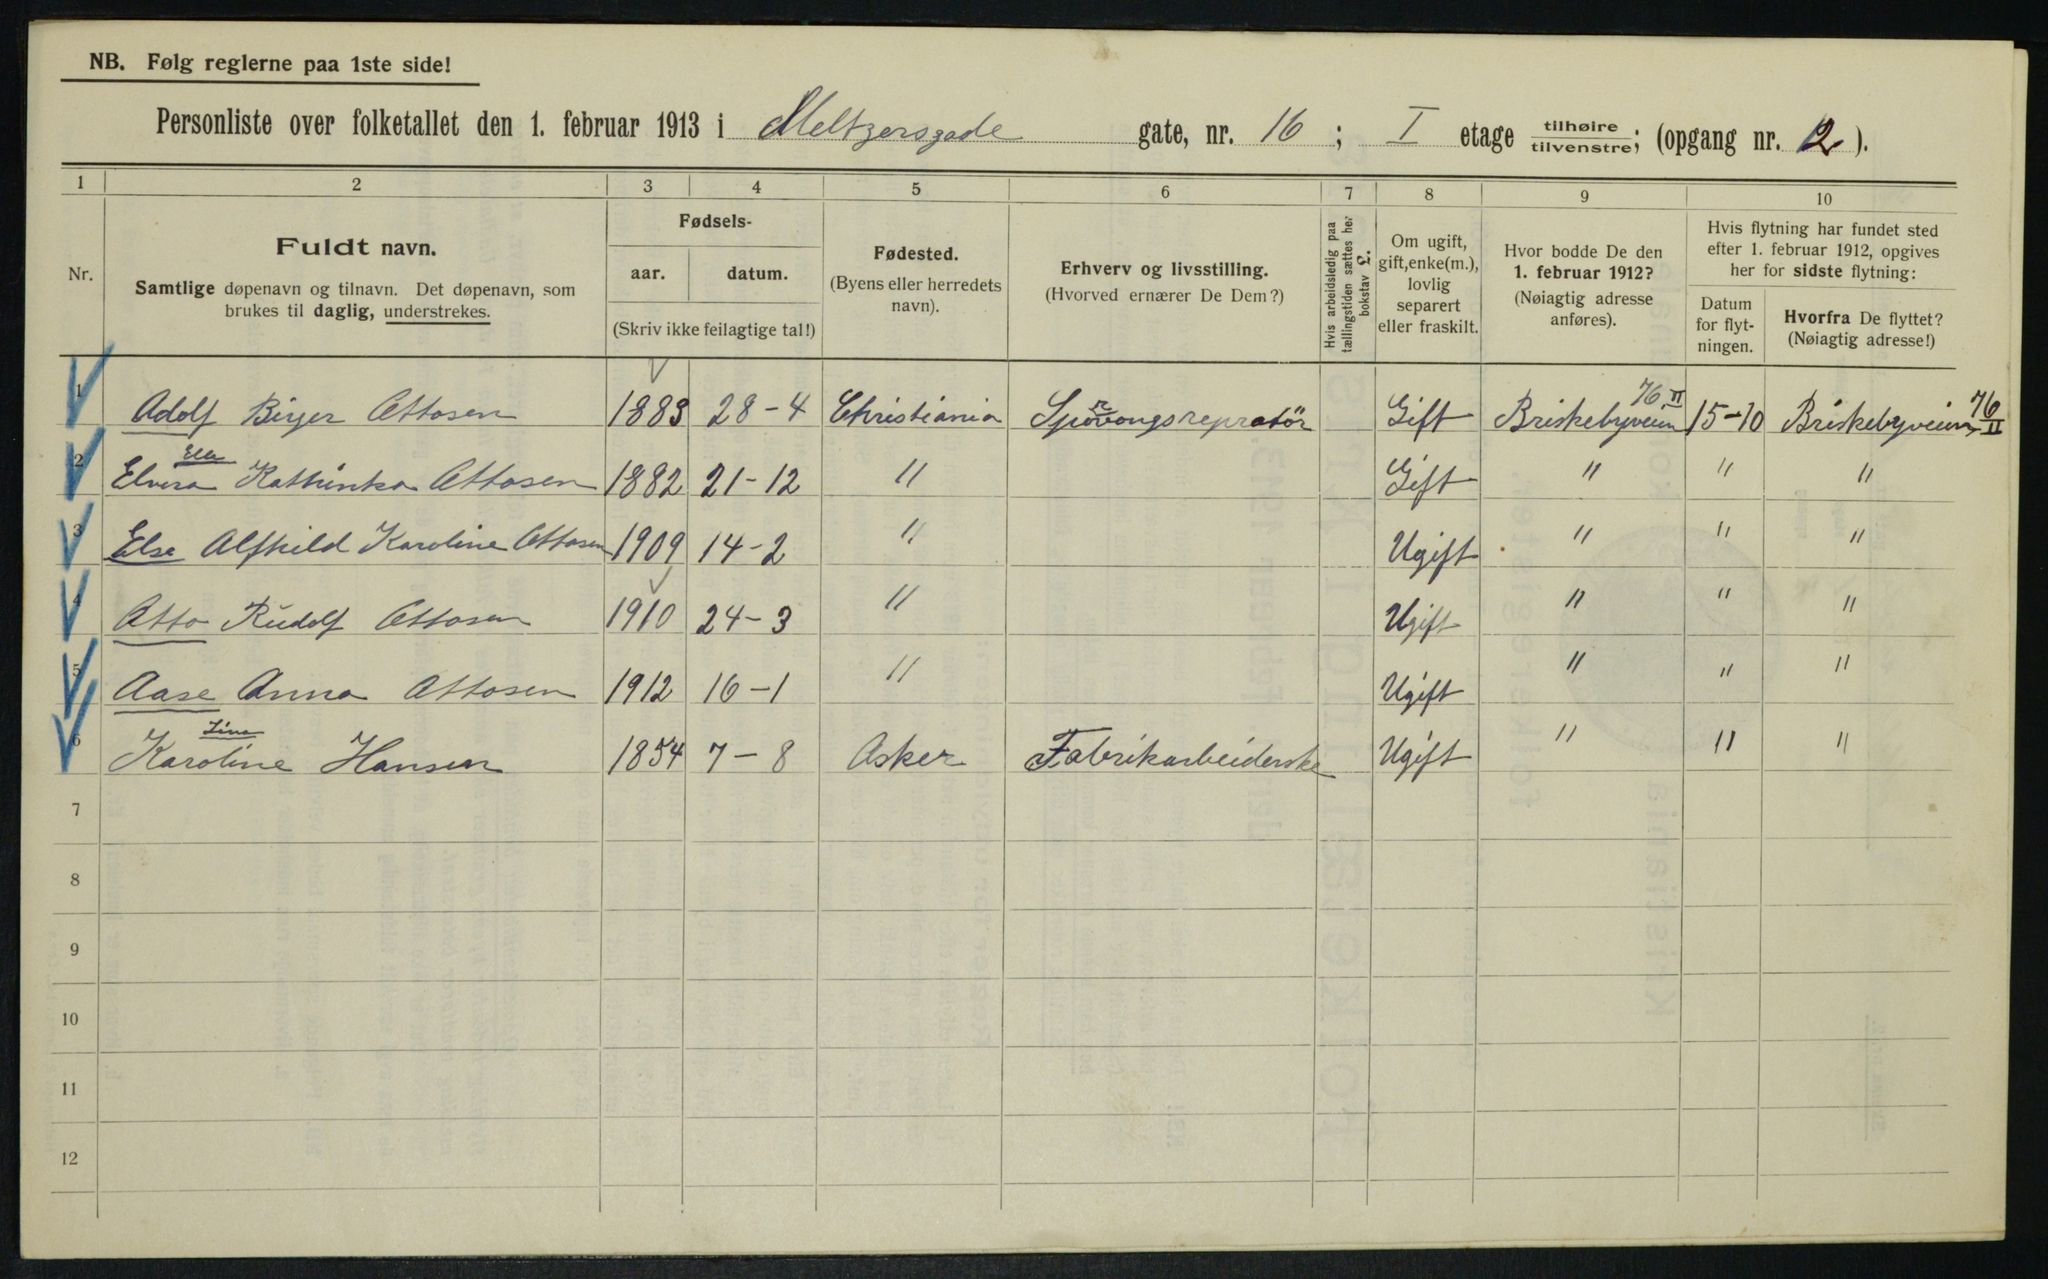 NB. Følg reglerne paa 1ste side!
Personliste over folketallet den 1. februar 1913 i Meltzersgade gate, nr. 16; I etage tilhøire / tilvenstre; (opgang nr. 2).
1 2 3 4 5 6 7 8 9 10
Nr.
Fuldt navn.
Samtlige døpenavn og tilnavn. Det døpenavn, som
brukes til daglig, understrekes.
Fødsels-
aar. datum.
(Skriv ikke feilagtige tal!)
Fødested.
(Byens eller herredets
navn).
Erhverv og livsstilling.
(Hvorved ernærer De Dem?)
Hvis arbeidsledig paa
tællingstiden sættes her
bokstav L.
Om ugift,
gift, enke(m.),
lovlig
separert
eller fraskilt.
Hvor bodde De den
1. februar 1912?
(Nøiagtig adresse
anføres).
Hvis flytning har fundet sted
efter 1. februar 1912, opgives
her for sidste flytning:
Datum
for flyt-
ningen.
Hvorfra De flyttet?
(Nøiagtig adresse!)
1 Adolf Birger Ottosen 1883 28-4 Christiania Gift Briskebyveien 76 II 15-10 Briskebyveien 76 II
Ella
2 Elvira Kathinka Ottosen 1882 21-12 " Gift " " "
3 Else Alfhild Karoline Ottosen 1909 14-2 " Ugift " " "
4 Otto Rudolf Ottosen 1910 24-3 " Ugift " " "
5 Aase Anna Ottosen 1912 16-1 " Ugift " " "
6 Karoline Hansen 1854 7-8 Asker Fabrikarbeiderske Ugift " " "
7
8
9
10
11
12